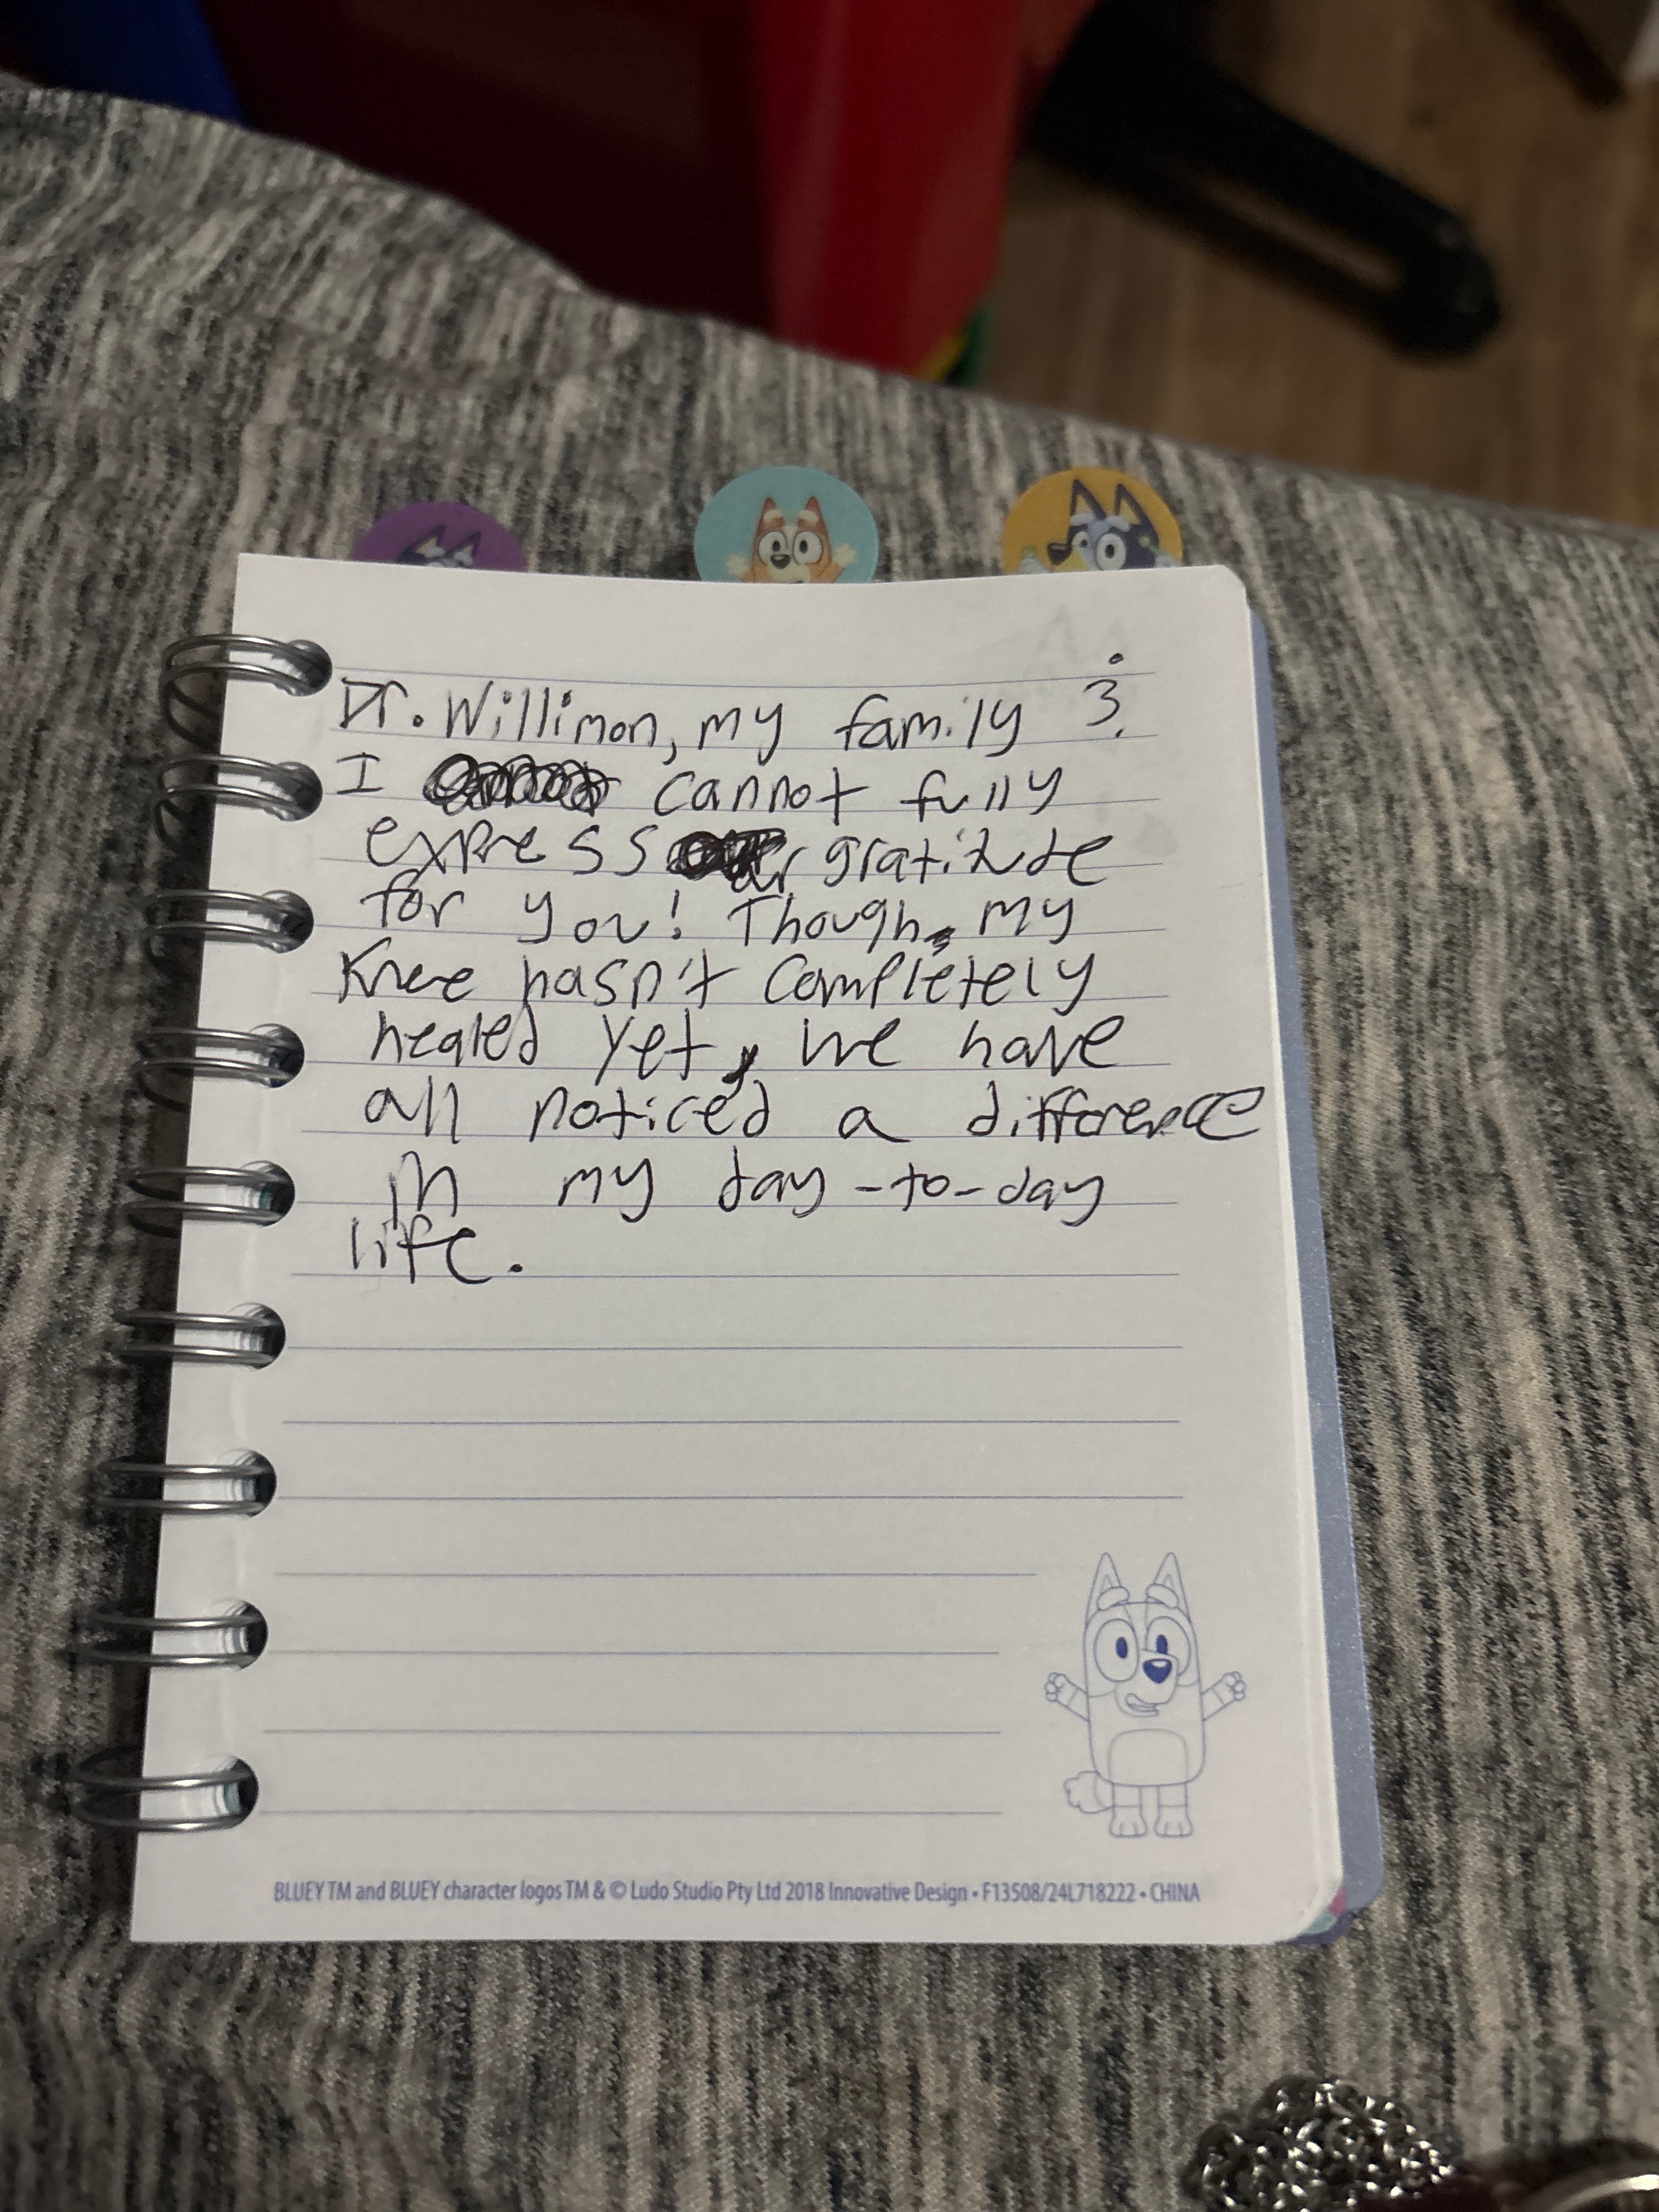 Dr. Willimon, my family &
I cannot fully
express our gratitude
for you! Though, my
Knee hasn't completely
healed yet, we have
all noticed a difference
in my day-to-day
life.
BLUEY TM and BLUEY character logos TM & © Ludo Studio Pty Ltd 2018 Innovative Design • F13508/24L718222 • CHINA